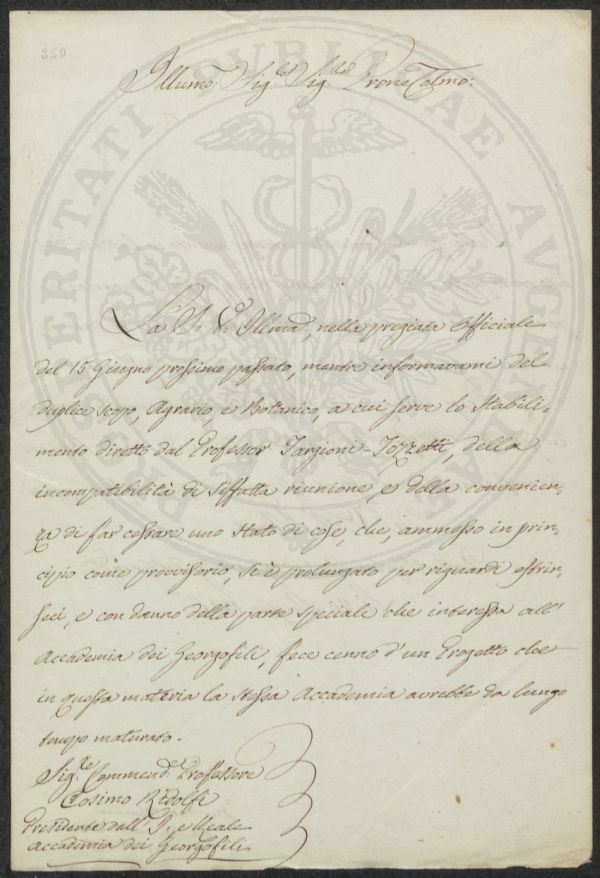 350
Illumo: Sigre Sigre Prone Colmo:
La S. V. Illma, nella pregiata Officiale
del 15 Giugno prossimo passato, mentre informavami del
duplice scopo, Agrario, e Botanico, a cui serve lo Stabili-
mento diretto dal Professor Targioni-Tozzetti, della
incompatibilità di siffatta riunione, e della convenien-
za di far cessare uno stato di cose, che, ammesso in prin-
cipio come provvisorio, si è prolungato per riguardi estrin-
seci, e con danno della parte speciale che interessa all'
Accademia dei Georgofili, fece cenno d'un Progetto che
in questa materia la stessa Accademia avrebbe da lungo
tempo maturato.
Sigre Commendre Professore
Cosimo Ridolfi
Presidente dall' I. e Reale
Accademia dei Georgofili
PROSPERITATI PUBLICAE AUGENDAE